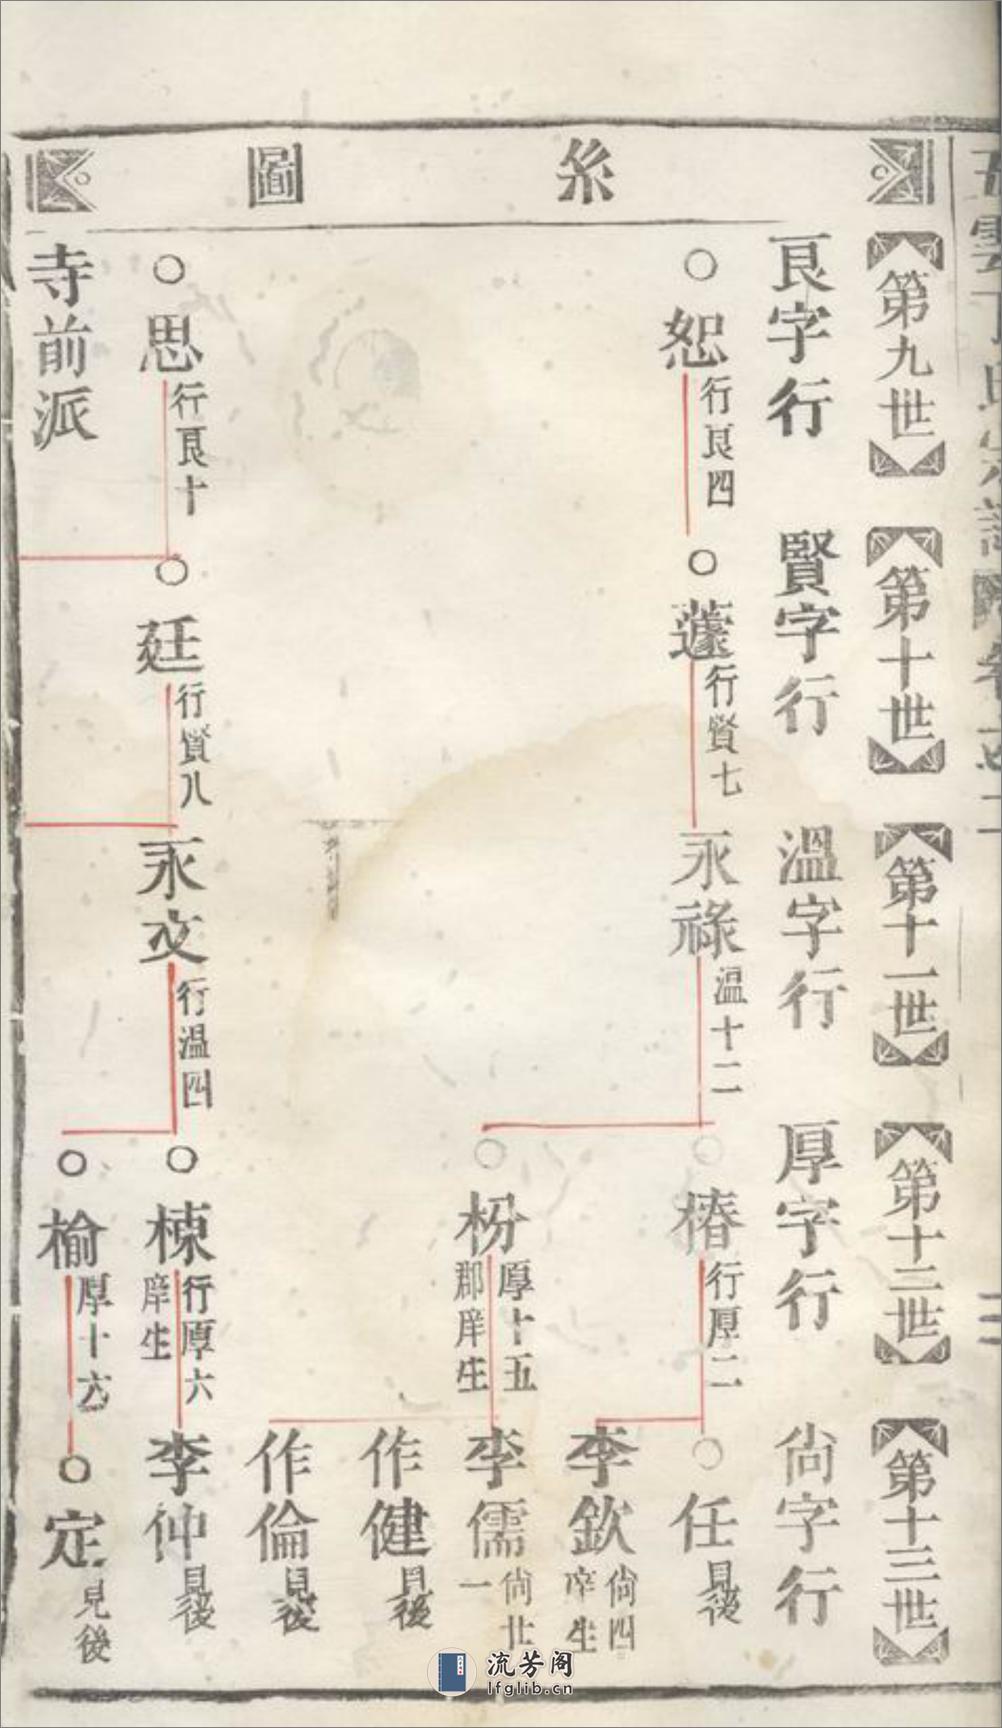 系圖
第九世
第十世
第十一世
第十二世
第十三世
艮字行
賢字行
溫字行
厚字行
尙字行
恕 行艮四
蘧 行賢七
永祿 溫十二
椿 行厚二
任 見後
李欽 尙四 庠生
枌 厚十五 郡庠生
李儒 尙廿一
作健 見後
作倫 見後
思 行艮十
廷 行賢八
永文 行溫四
棟 行厚六 庠生
李仲 見後
寺前派
榆 厚十六
定 見後
流芳阁
lfglib.cn